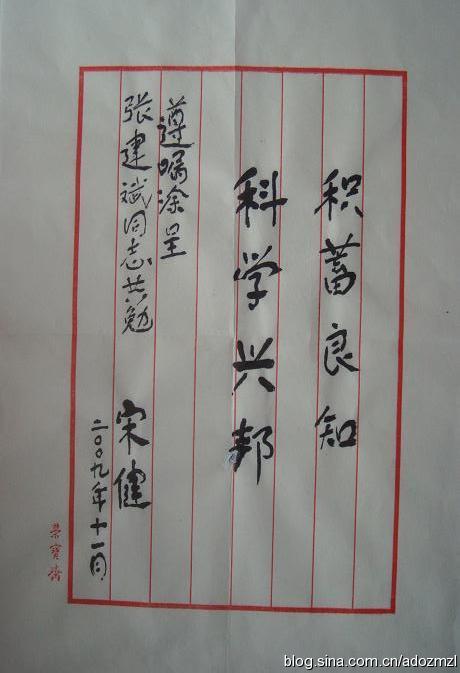 积蓄良知
科学兴邦
遵嘱涂呈
张建斌同志共勉
宋健
二〇〇九年十一月
荣宝斋
blog.sina.com.cn/adozmzl